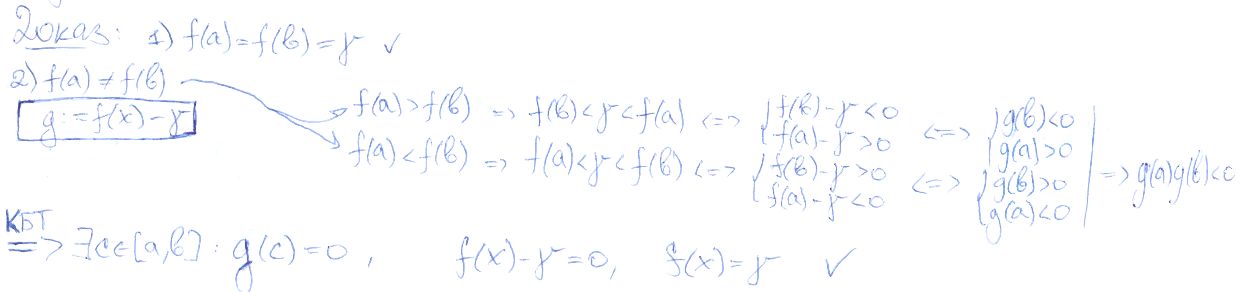 Доказ: 1) f(a)=f(b)=γ ✓
2) f(a)≠f(b)
g:=f(x)-γ
f(a)>f(b) => f(b)<γ<f(a) <=> {f(b)-γ<0 f(a)-γ>0 <=> {g(b)<0 g(a)>0
f(a)<f(b) => f(a)<γ<f(b) <=> {f(b)-γ>0 f(a)-γ<0 <=> {g(b)>0 g(a)<0 | => g(a)g(b)<0
КБТ
=> ∃c∈[a,b]: g(c)=0, f(x)-γ=0, f(x)=γ ✓